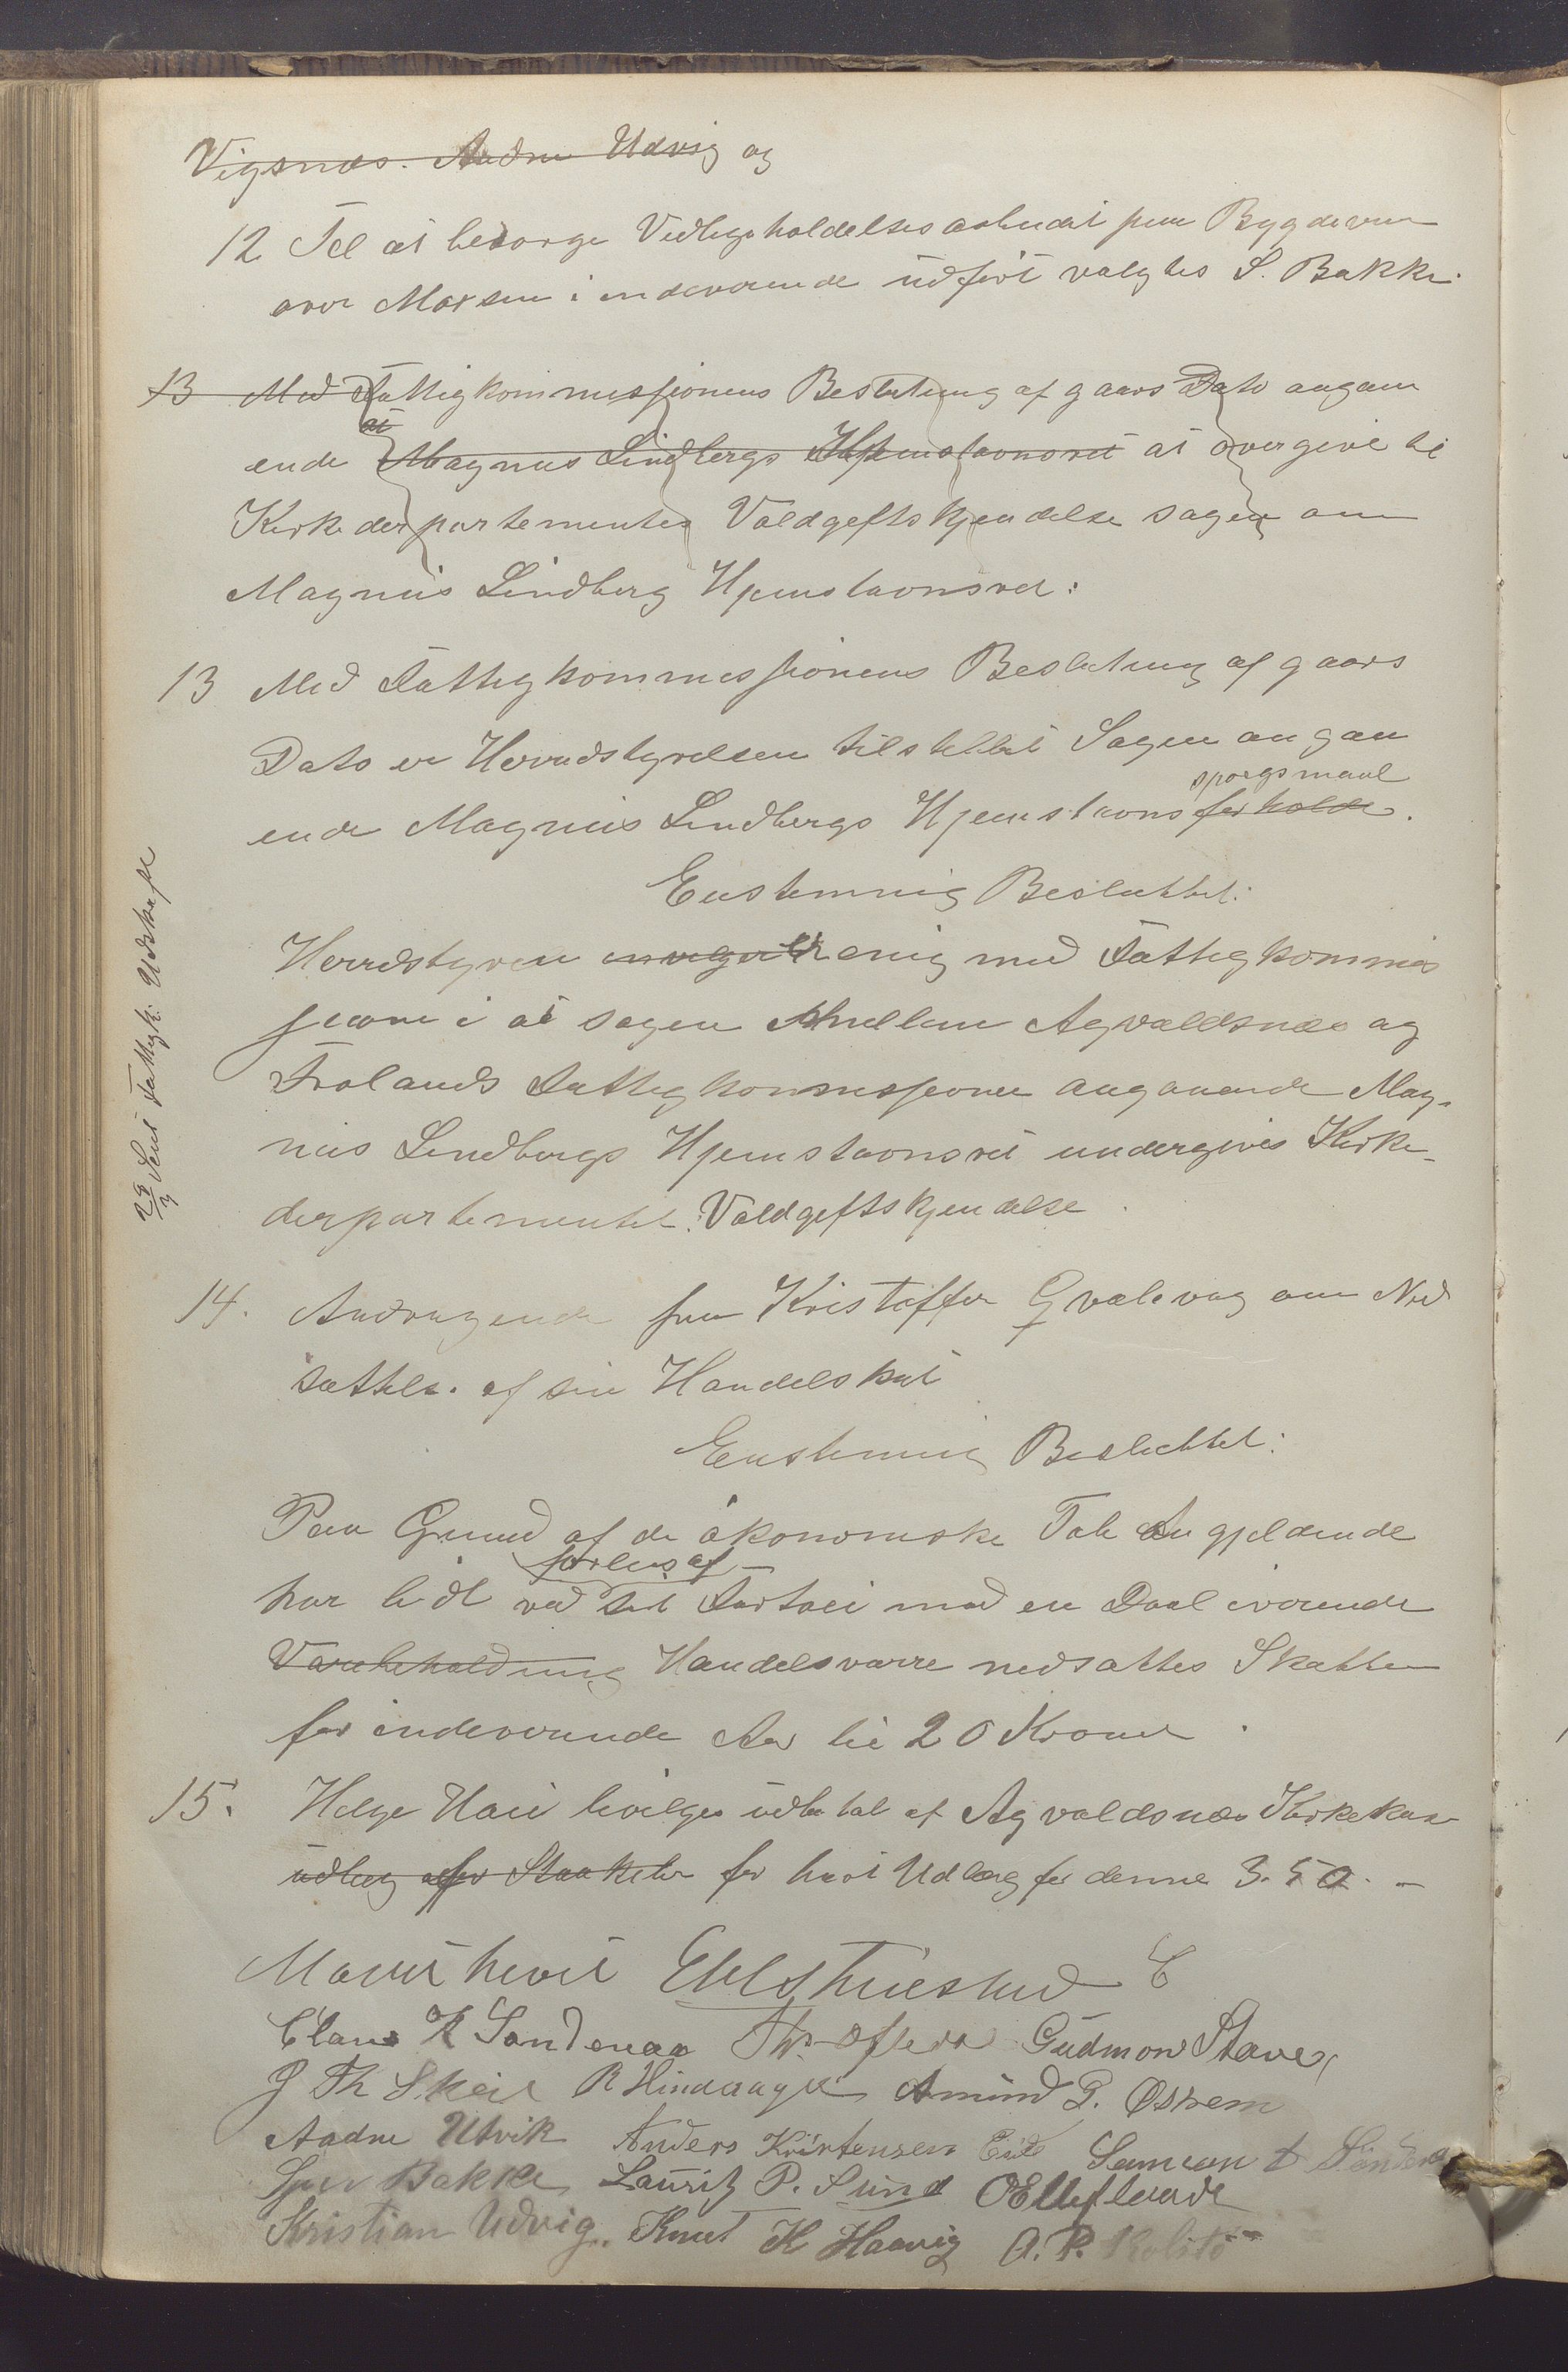 Vigsnæs. Aadne Udvig og
12 Til at besørge Vedligeholdelsesarbeidet paa Bygdeveien
over Moksen i indeværende udført valgtes S. Bakke.
13 Med Fattigkommissionens Beslutning af gaars Dato angaa
at
ende Magnus Lindbergs Hjemstavnsret at overgive til
Kirkederpartementes Voldgiftskjendelse sagen om
Magnus Lindberg Hjemstavnsret:
13 Med Fattigkommissionens Beslutning af gaars
Dato er Herredstyrelsen tilstillet Sagen angaa
spørgsmaal
ende Magnus Lindbergs Hjemstavnsforholde.
Enstemmig Besluttet:
Herredstyren er enig med Fattigkommis
sionen i at sagen Mellem Agvaldsnæs og
Frolands Fattigkommissioner angaaende Mag-
nus Lindbergs Hjemstavnsret undergives Kirke-
derpartementet Voldgiftskjendelse.
28/2 Sent Fattigk. Udskrift
14. Andragende fra Kristoffer Qvalevag om Ned
sættelse af sin Handelskat
Enstemmig Besluttet:
Paa Grund af de økonomiske Tab Angjældende
forlis af
har lidt ved sit Fartøi med en Deel iværende
Varebeholdning Handelsvarre nedsattes Skatten
for indeværende Aar til 20 Kroner.
15. Helge Hoie bevilges udbetalt af Agvaldsnæs Kirkekasse
udlæg for Staaketer for havt Udlæg for denne 3.50.-
Mauritz Hevit
Clans K Sandenaa Gudmon Stave
J Th Skeie R Hindaager Amund G. Østrem
Aadne Utvik Anders Kristensen Eide Samson
Sjur Bakke Lauritz P. Sund O Ellefland
Kristian Udvig. Knut K Haavig O. P. Kolstø